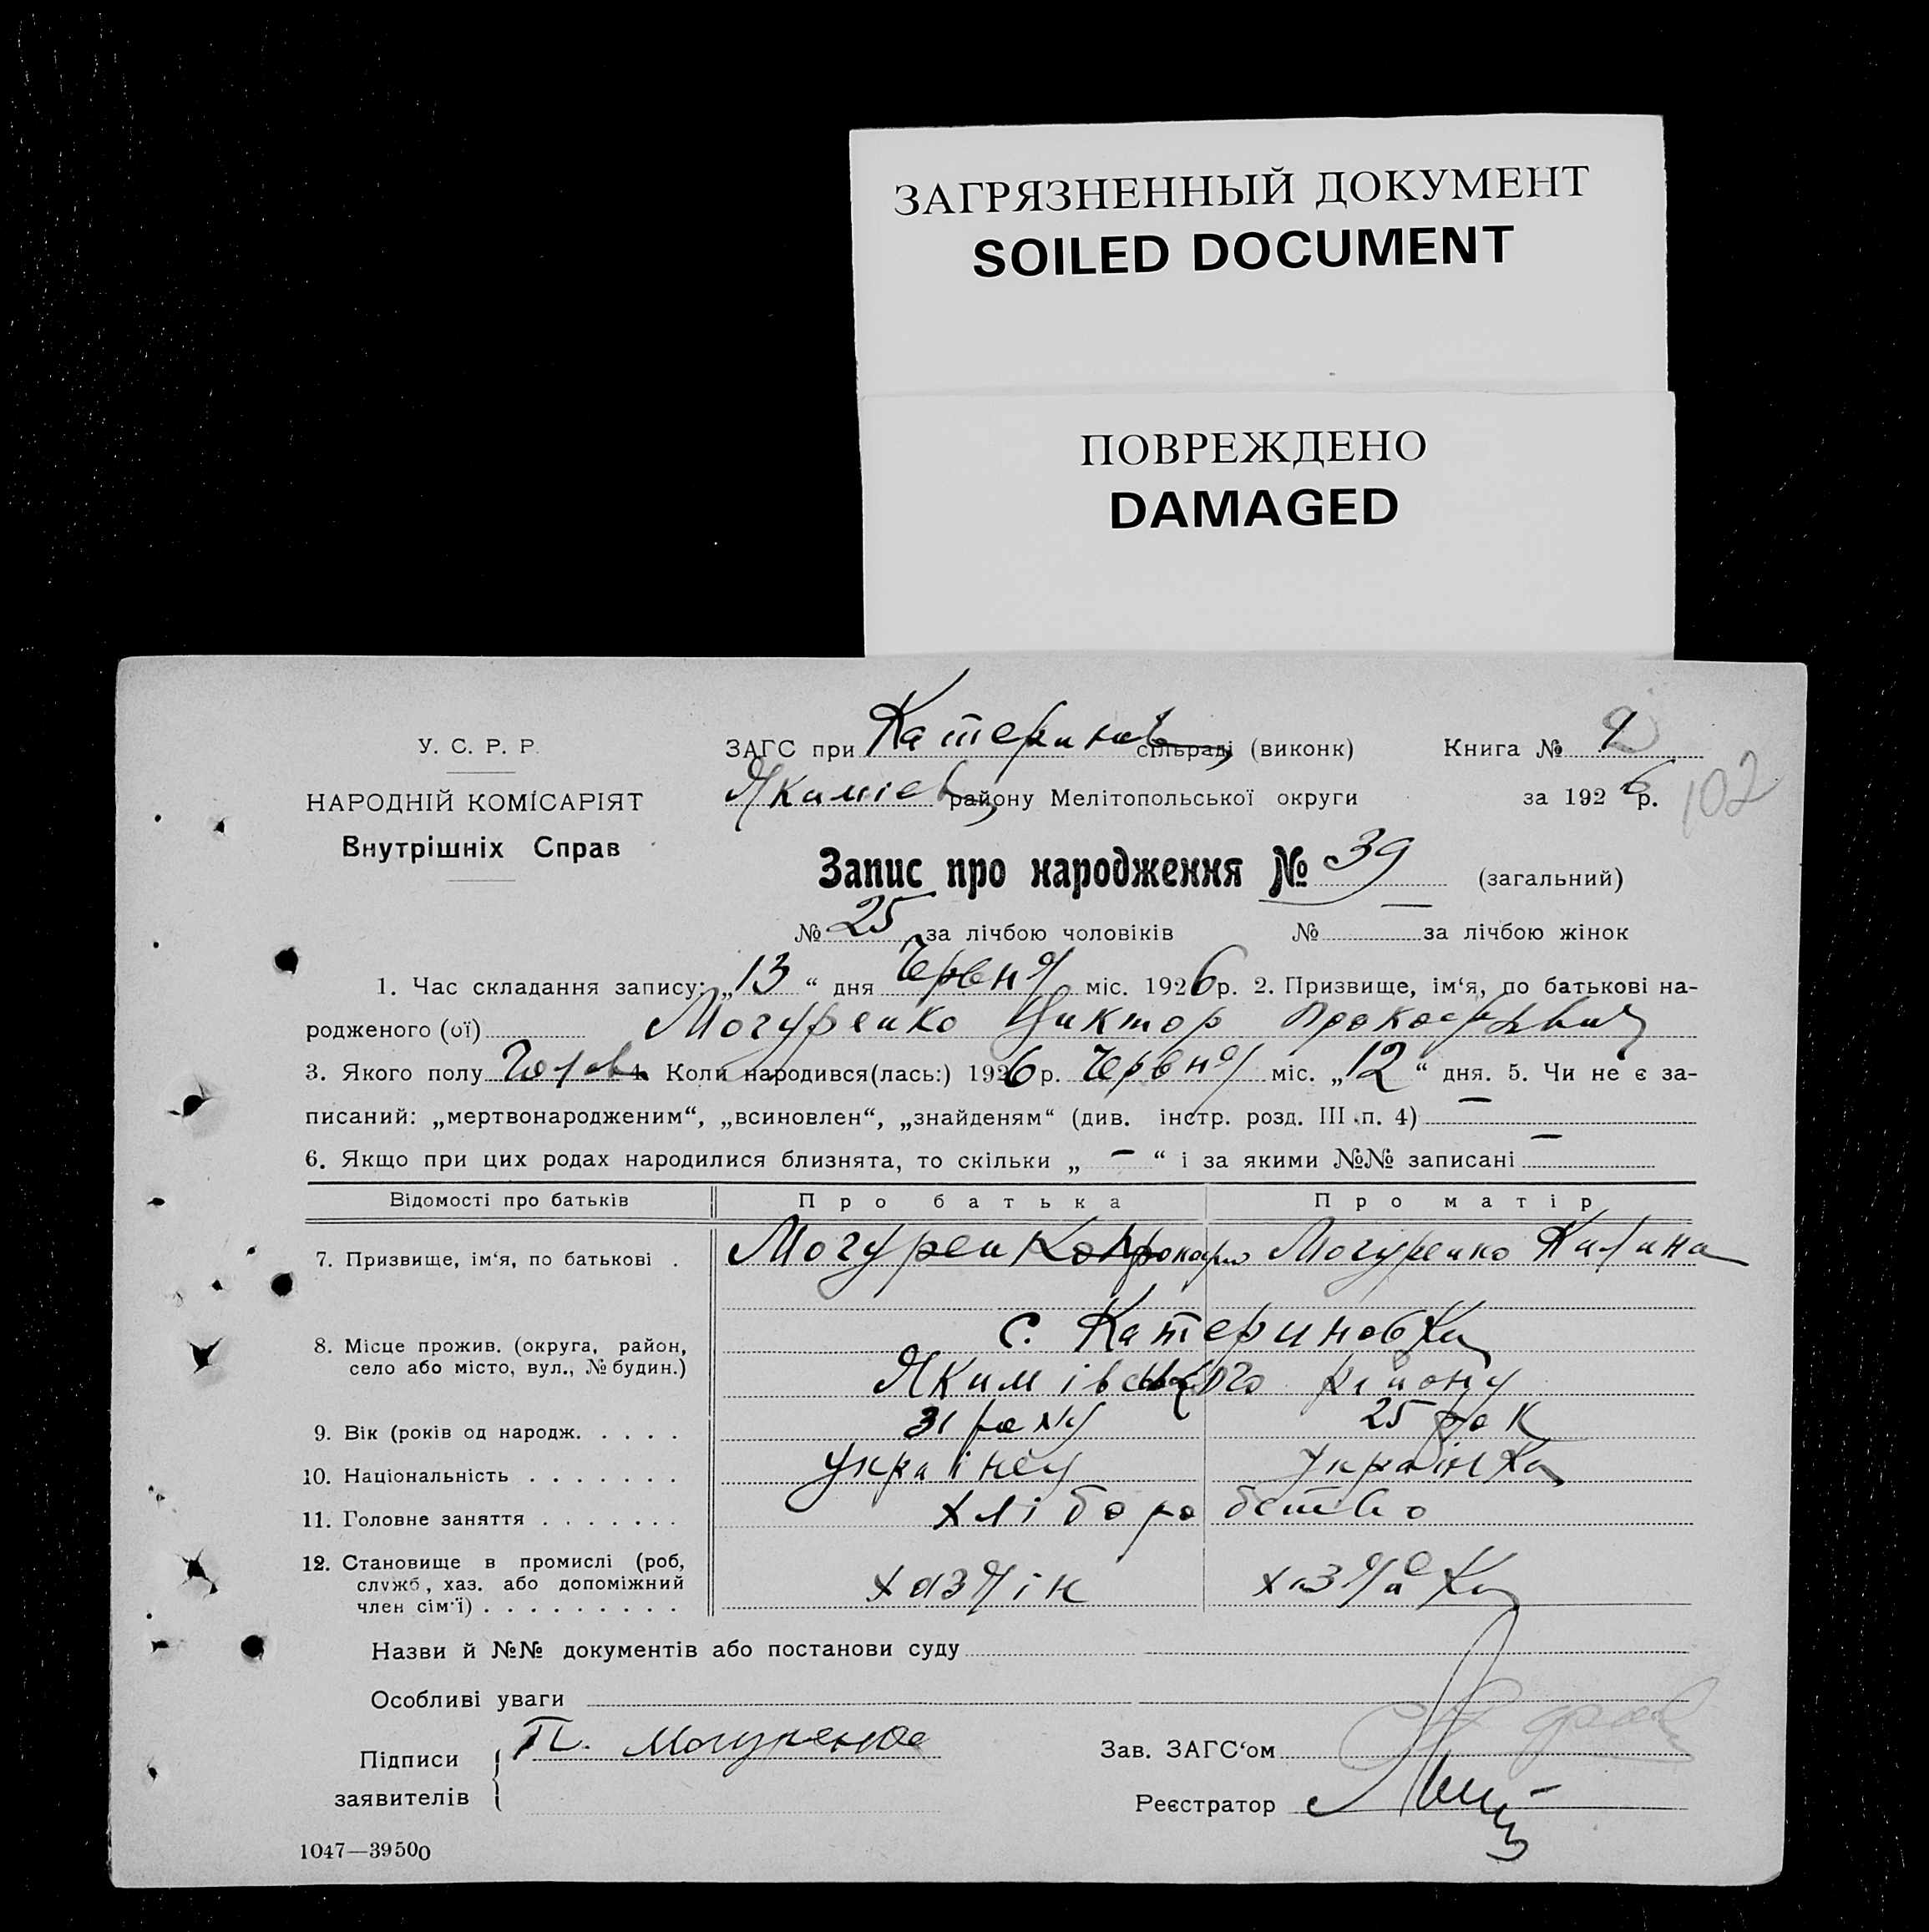 ЗАГРЯЗНЕННЫЙ ДОКУМЕНТ
SOILED DOCUMENT
ПОВРЕЖДЕНО
DAMAGED
У. С. Р. Р.
НАРОДНІЙ КОМІСАРІЯТ
Внутрішніх Справ
ЗАГС при Катеринов сільраді (виконк) Книга №
Якиміев району Мелітопольської округи за 1926 р. 102
Запис про народження № 39 (загальний)
№ 25 за лічбою чоловіків № — за лічбою жінок
1. Час складання запису: „13“ дня Червня міс. 1926 р. 2. Призвище, ім‘я, по батькові на-
родженого (ої) Могуренко Виктор
3. Якого полу Чолов 4. Коли народився(лась:) 1926 р. Червня міс. „12“ дня. 5. Чи не є за-
писаний: „мертвонародженим“, „всиновлен“, „знайденям“ (див. інстр. розд. III п. 4) —
6. Якщо при цих родах народилися близнята, то скільки „ — “ і за якими №№ записані —
Відомості про батьків Про батька Про матір
7. Призвище, ім‘я, по батькові . Могуренко Могуренко Килина
8. Місце прожив. (округа, район,
село або місто, вул., № будин.)
с. Катериновка
Якимівського району
9. Вік (років од народж. . . . . 31 року 25 рок
10. Національність . . . . . . . українец українка
11. Головне заняття . . . . . . . хліборобство
12. Становище в промислі (роб,
служб, хаз. або допоміжний
член сім‘ї) . . . . . . . . . хазяін хазяйка
Назви й №№ документів або постанови суду
Особливі уваги
Підписи
заявителів
П. Могуренко
Зав. ЗАГС‘ом
Реєстратор
1047—39500